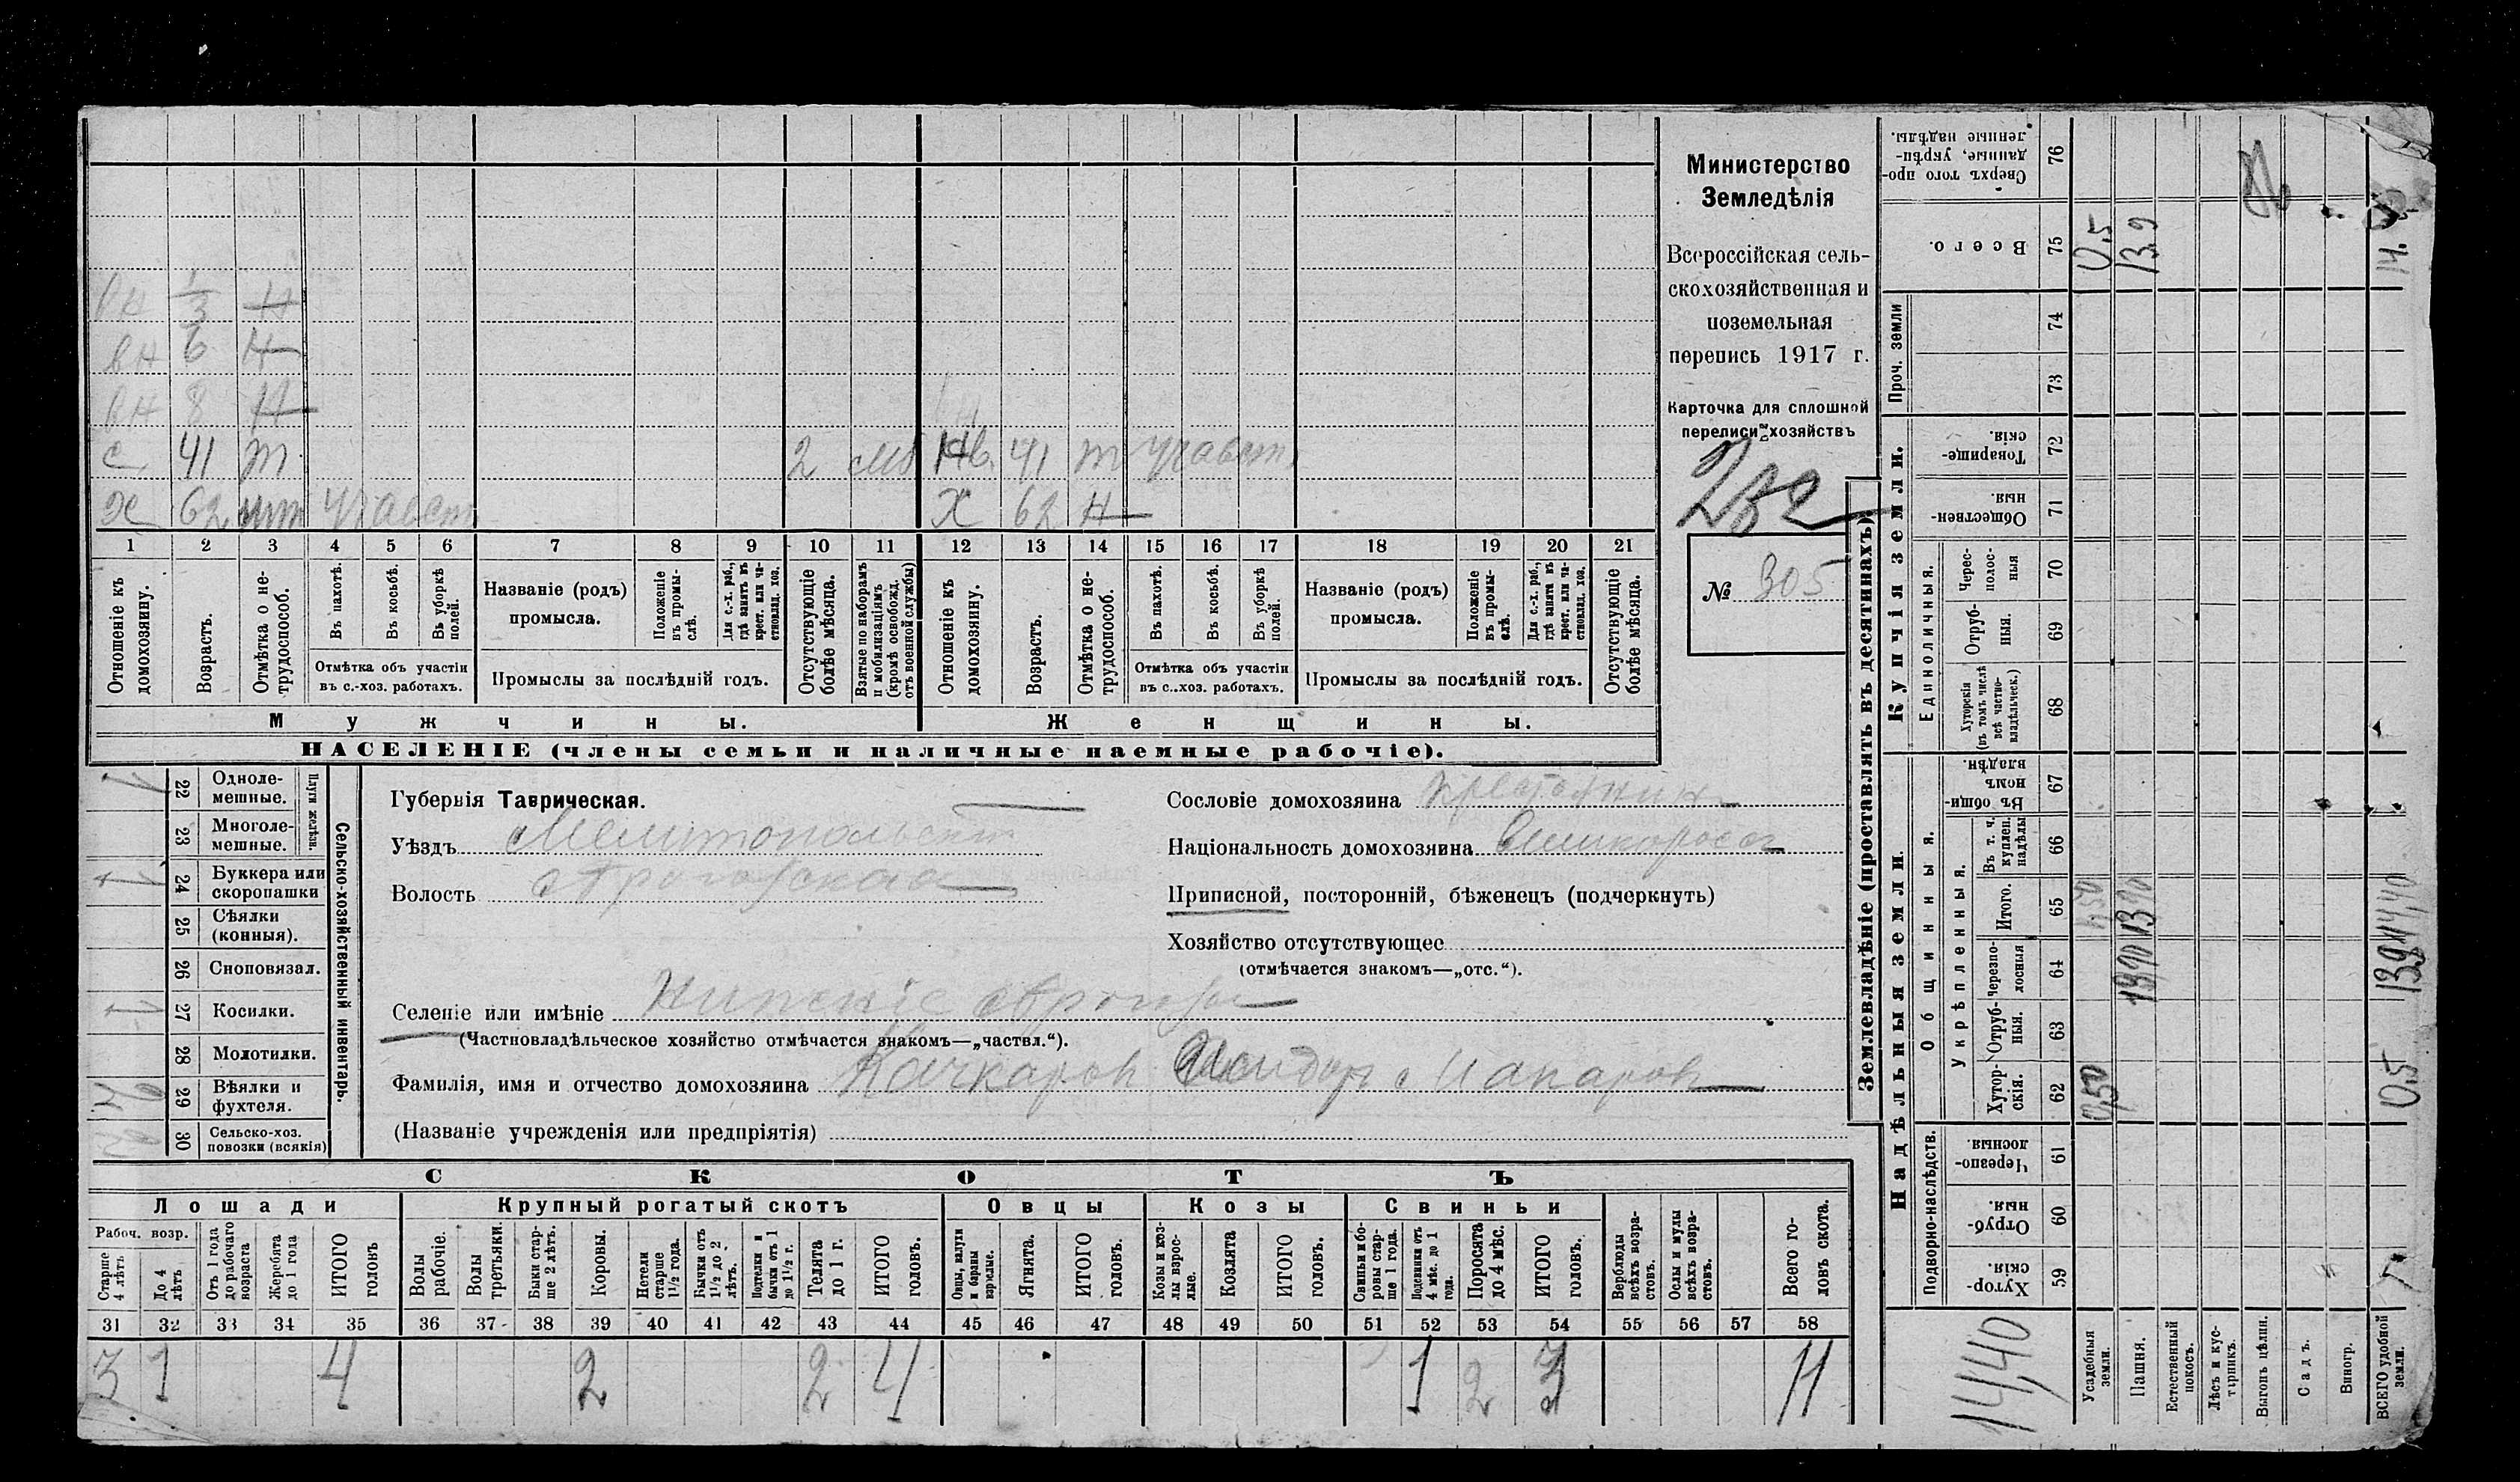 вн 1/3 н
вн 6 н
вн 8 н
с 41 т 2 41 т участ
х 62 участ х 62 н
1 2 3 4 5 6 7 8 9 10 11 12 13 14 15 16 17 18 19 20 21
Отношеніе къ домохозяину.
Возрастъ.
Отмѣтка о нетрудоспособ.
Въ пахотѣ.
Въ косьбѣ.
Въ уборкѣ полей.
Отмѣтка объ участіи
въ с.-хоз. работахъ.
Названіе (родъ)
промысла.
Положеніе въ промыслѣ.
Для с.-х. раб., гдѣ занятъ въ крест. или частновлад. хоз.
Промыслы за послѣдній годъ.
Отсутствующіе болѣе мѣсяца.
Взятые по наборамъ и мобилизаціямъ (кромѣ освобожд. отъ военной службы)
Отношеніе къ домохозяину.
Возрастъ.
Отмѣтка о нетрудоспособ.
Въ пахотѣ.
Въ косьбѣ.
Въ уборкѣ полей.
Отмѣтка объ участіи
въ с..хоз. работахъ.
Названіе (родъ)
промысла.
Положеніе въ промыслѣ.
Для с.-х. раб., гдѣ занята въ крест. или частновлад. хоз.
Промыслы за послѣдній годъ.
Отсутствующіе болѣе мѣсяца.
Мужчины.
Женщины.
НАСЕЛЕНІЕ (члены семьи и наличные наемные рабочіе).
Министерство
Земледѣлія
Всероссійская сель-
скохозяйственная и
поземельная
перепись 1917 г.
Карточка для сплошной
переписи хозяйствъ
№ 305
Сельско-хозяйственный инвентарь.
Плуги желѣзн.
22 Одноле-
мешные.
23 Многоле-
мешные.
24 Буккера или
скоропашки
25 Сѣялки
(конныя).
26 Сноповязал.
27 Косилки.
28 Молотилки.
29 Вѣялки и
фухтеля.
30 Сельско-хоз.
повозки (всякія)
Губернія Таврическая.
Уѣздъ Мелитопольскій
Волость
Селеніе или имѣніе
(Частновладѣльческое хозяйство отмѣчается знакомъ—„частвл.“).
Фамилія, имя и отчество домохозяина Качкаровъ
(Названіе учрежденія или предпріятія)
Сословіе домохозяина крестьянин
Національность домохозяина великоросс
Приписной, посторонній, бѣженецъ (подчеркнуть)
Хозяйство отсутствующее
(отмѣчается знакомъ—„отс.“).
СКОТЪ
Лошади
Крупный рогатый скотъ
Овцы
Козы
Свиньи
Рабоч. возр.
Старше 4 лѣтъ
До 4 лѣтъ
Отъ 1 года до рабочаго возраста
Жеребята до 1 года
ИТОГО головъ
Волы рабочіе.
Волы третьяки.
Быки старше 2 лѣтъ.
Коровы.
Нетели старше 1 1/2 года.
Бычки отъ 1 1/2 до 2 лѣтъ.
Подтелки и бычки отъ 1 до 1 1/2 г.
Телята до 1 г.
ИТОГО головъ.
Овцы, валухи и бараны взрослые.
Ягнята.
ИТОГО головъ.
Козы и козлы взрослые.
Козлята
ИТОГО головъ.
Свиньи и боровы старше 1 года.
Подсвинки отъ 4 мѣс. до 1 года.
Поросята до 4 мѣс.
ИТОГО головъ.
Верблюды всѣхъ возрастовъ.
Ослы и мулы всѣхъ возрастовъ.
Всего головъ скота.
31 32 33 34 35 36 37 38 39 40 41 42 43 44 45 46 47 48 49 50 51 52 53 54 55 56 57 58
3 1 4 2 2 4 1 2 3 11
Землевладѣніе (проставлять въ десятинахъ)
Надѣльныя земли.
Купчія земли.
Проч. земли
Подворно-наслѣдств.
Общинныя.
Укрѣпленныя.
Единоличныя.
59 Хуторскія.
60 Отрубныя.
61 Черезполосныя.
62 Хуторскія.
63 Отрубныя.
64 Черезполосныя
65 Итого.
66 Въ т. ч. куплен. надѣлы
67 Въ общиномъ владѣн.
68 Хуторскія (въ томъ числѣ всѣ частновладѣльческ.)
69 Отрубныя.
70 Черезполосныя
71 Общественныя.
72 Товарищескія.
73
74
75 Всего.
76 Сверхъ того проданные, укрѣпленные надѣлы.
14,40
Усадебныя земли. 0,50 0,50 0,5
Пашня. 13,90 13,90 13,9
Естественный покосъ.
Лѣсъ и кустарникъ.
Выгонъ цѣлин.
Садъ.
Виногр.
ВСЕГО удобной земли. 0,5 14,40